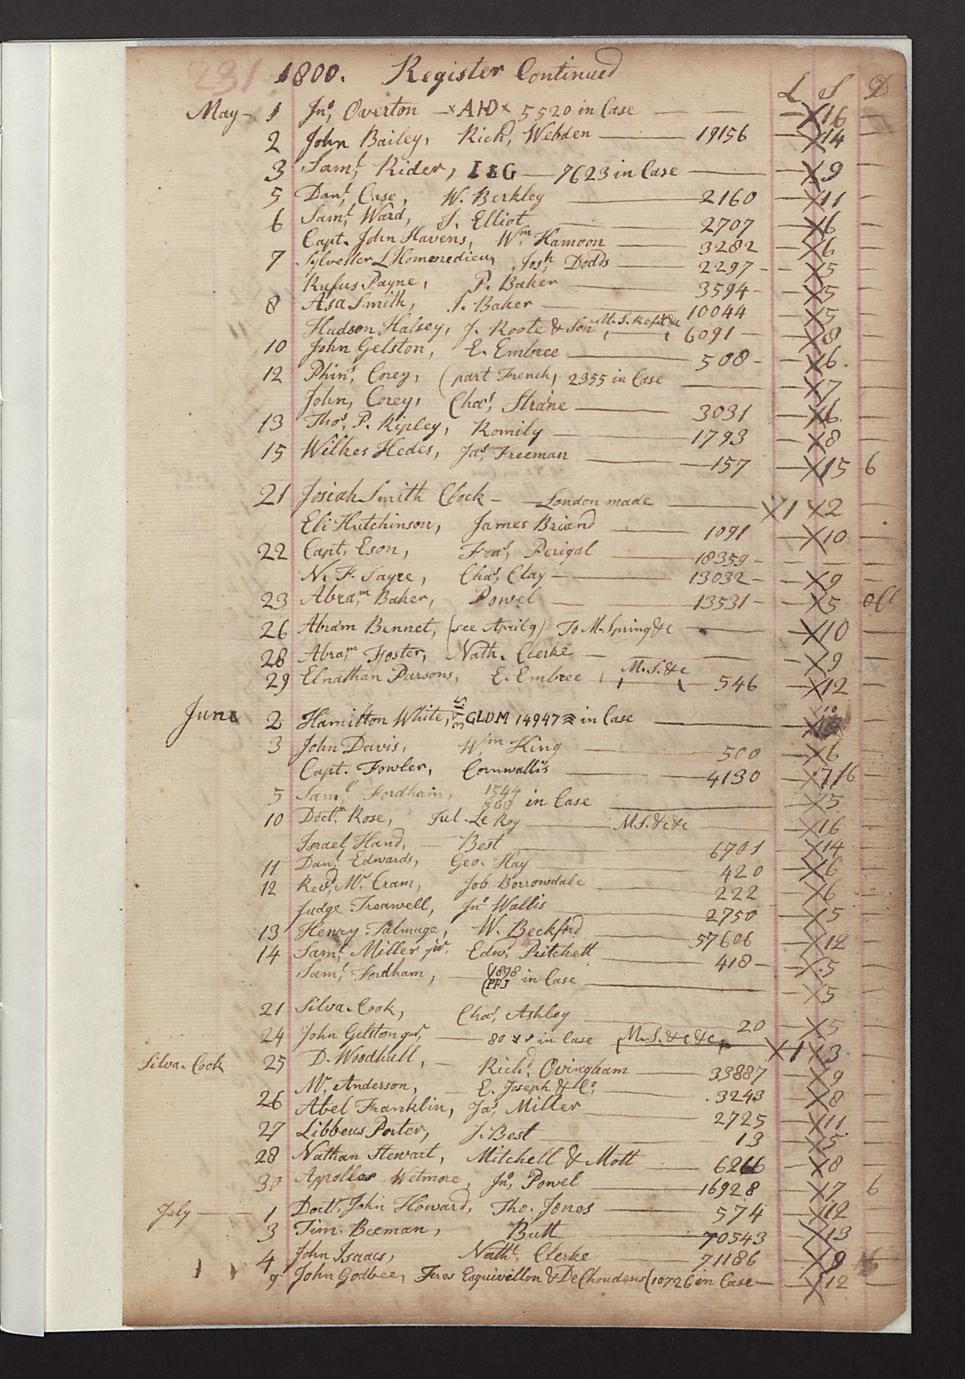 231 1800. Register Continued
£ S D
May - 1 Jno. Overton — ×AHD× 5520 in Case — 16 —
2 John Bailey, Richd. Webden — 19156 — 14 —
3 Saml. Rider, I&G — 7623 in Case — 9 —
5 Danl. Case, W. Berkley — 2160 — 11 —
6 Saml. Ward, J. Elliot — 2707 — 6 —
Capt. John Havens, Wm. Hamoon — 3282 — 6 —
7 Sylvester L'Homedieu, Josh. Dodds — 2297 — 5 —
Rufus Payne, P. Baker — 3594 — 5 —
8 Asa Smith, J. Baker — 10044 — 5 —
Hudson Halsey, J. Roote & Son M.S. &c 6091 — 8 —
10 John Gelston, E. Embree — 508 — 6. —
12 Phins. Corey, (part French, 2355 in Case — 7 —
John, Corey, Chas. Strane — 3031 — 6 —
13 Thos. P. Ripley, Romily — 1793 — 8 —
15 Wilkes Hedes, Jas. Freeman — 157 — 15 6
21 Josiah Smith Clock — London made — 1 2
Eli Hutchinson, James Briand — 1091 — 10 —
22 Capt. Eson, Fras. Perigal — 18359 —
N. F. Sayre, Chas. Clay — 13032 — 9 —
23 Abram. Baker, Powel — 13531 — 5
26 Abram Bennet, (see April 9) To M. Spring &c — 10 —
28 Abram. Foster, Nath. Clerke — 9 —
29 Elnathan Parsons, E. Embree, M.S. &c 546 — 12 —
June 2 Hamilton White, GLUM 14947 in Case —
3 John Davis, Wm. King — 500 — 6 —
Capt. Fowler, Cornwallis — 4130 — 7/6 —
5 Saml. Fordham, 1544 in Case — 5 —
10 Doctr. Rose, Jul. Le Roy — M.S. &c &c — 16 —
Israel Hand, — Best — 6701 — 14 —
11 Danl. Edwards, Geo. Hay — 420 — 6 —
12 Revd. Mr. Cram, Job Borrowdale — 222 — 6 —
Judge Treawell, Jno. Wallis — 2750 — 5 —
13 Henry Talmage, W. Beckford — 57606 — 12 —
14 Saml. Miller jur. Edwd. Pritchett — 418 — 5 —
Saml. Fordham, — (1898 PPJ in Case — 5 —
21 Silva. Cook, Chas. Ashley — 20 — 5 —
24 John Gelston jur. — 80 in Case M.S. &c &c — 1 3 —
Silva. Cook 25 D. Woodhull, — Richd. Ovingham — 33887 — 9 —
Mr. Anderson, E. Joseph & Co. — 3243 — 8 —
26 Abel Franklin, Jas. Miller — 2725 — 11 —
27 Libbeus Porter, J. Best — 13 — 5 —
28 Nathan Stewart, Mitchell & Mott — 6266 — 8 —
30 Apollos Wetmore, Jno. Powel — 16928 — 7 6
July — 1 Doctr. John Howard, Tho. Jones — 574 — 12 —
3 Tim. Beeman, Butt — 70543 — 13 —
4 John Isaacs, Nathl. Clerke — 71186 — 9
9 John Godbee, Fres Esquivillon & De Choudens (10726 in Case — 12 —